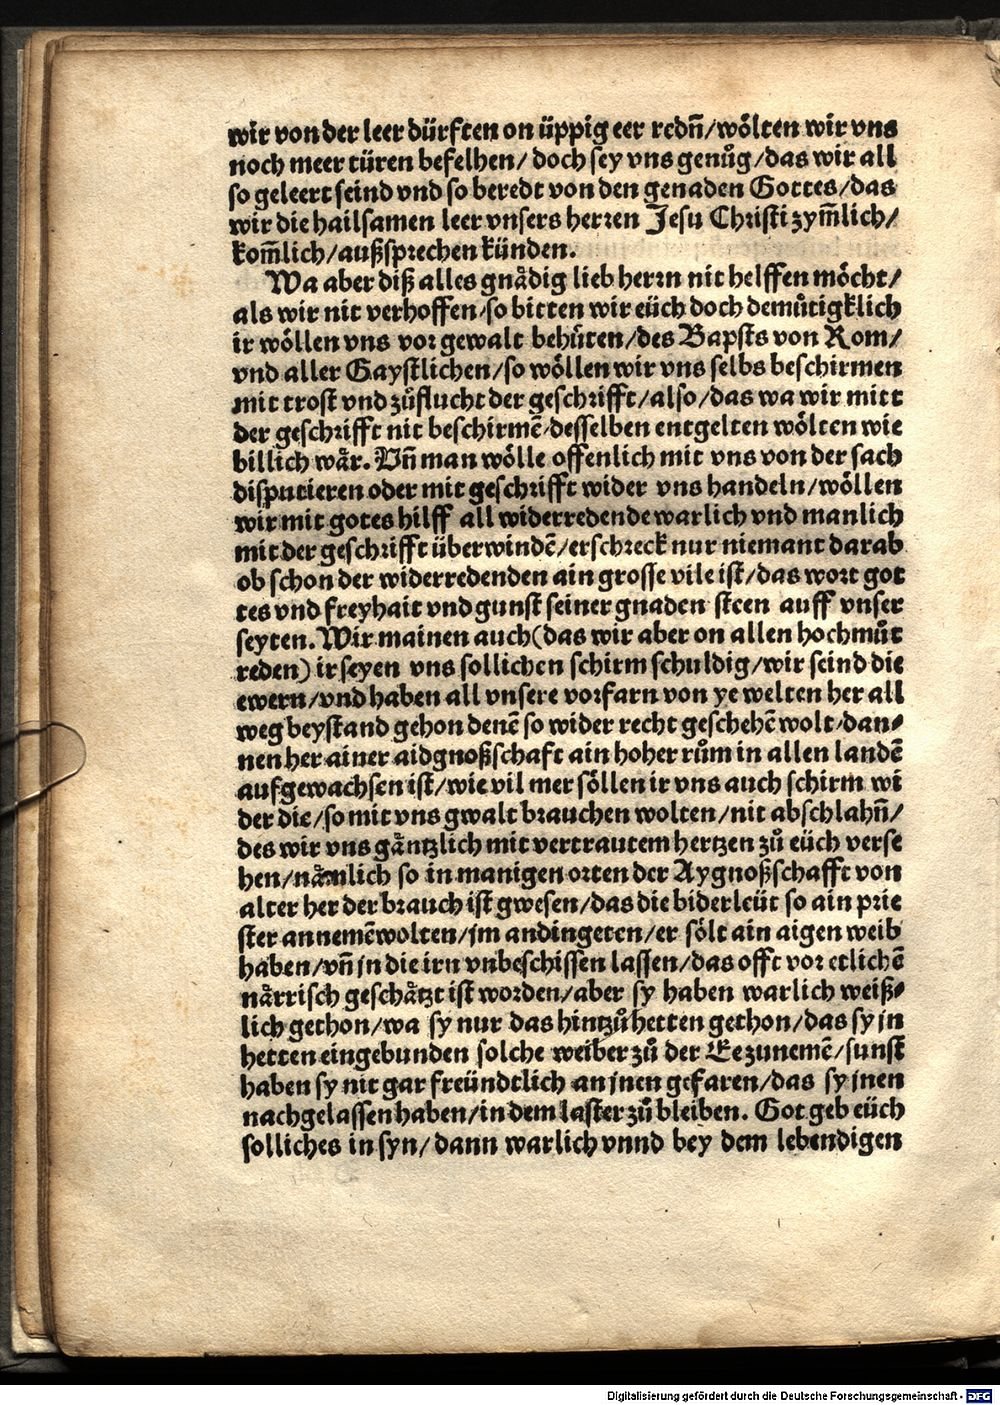 wir von der leer dürften on üppig eer redn̄/woͤlten wir vns
noch meer türen befelhen/ doch sey vns genuͦg/das wir all
so geleert seind vnd so beredt von den genaden Gottes/das
wir die hailsamen leer vnsers herren Jesu Christi zym̄lich/
kom̄lich/außsprechen künden.
Wa aber diß alles gnaͤdig lieb herrn nit helffen moͤcht/
als wir nit verhoffen/so bitten wir eüch doch demuͤtigklich
ir woͤllen vns vor gewalt behuͤten/des Bapsts von Rom/
vnd aller Gaystlichen/so woͤllen wir vns selbs beschirmen
mit trost vnd zuͦflucht der geschrifft/also/das wa wir mitt
der geschrifft nit beschirmē/desselben entgelten woͤlten wie
billich waͤr. Vn̄ man woͤlle offenlich mit vns von der sach
disputieren oder mit geschrifft wider vns handeln/woͤllen
wir mit gotes hilff all widerredende warlich vnd manlich
mit der geschrifft überwindē/erschreck nur niemant darab
ob schon der widerredenden ain grosse vile ist/das wort got
tes vnd freyhait vnd gunst seiner gnaden steen auff vnser
seyten. Wir mainen auch(das wir aber on allen hochmuͦt
reden) ir seyen vns sollichen schirm schuldig/wir seind die
ewern/vnd haben all vnsere vorfarn von ye welten her all
weg beystand gehon denē so wider recht geschehē wolt/dan⸗
nen her ainer aidgnoßschaft ain hoher ruͦm in allen landē
aufgewachsen ist/wie vil mer soͤllen ir vns auch schirm wi
der die/so mit vns gwalt brauchen wolten/nit abschlahn̄/
des wir vns gaͤntzlich mit vertrautem hertzen zuͦ eüch verse
hen/naͤmlich so in manigen orten der Aygnoßschafft von
alter her der brauch ist gwesen/das die biderleüt so ain prie
ster annemē wolten/jm andingeten/er soͤlt ain aigen weib
haben/vn̄ jn die irn vnbeschissen lassen/das offt vor etlichē
naͤrrisch geschaͤtzt ist worden/aber sy haben warlich weiß⸗
lich gethon/wa sy nur das hintzuͦ hetten gethon/das sy jn
hetten eingebunden solche weiber zuͦ der Ee zunemē/sunst
haben sy nit gar freündtlich an jnen gefaren/das sy jnen
nachgelassen haben/in dem laster zuͦ bleiben. Got geb eüch
solliches in syn/ dann warlich vnnd bey dem lebendigen
Digitalisierung gefördert durch die Deutsche Forschungsgemeinschaft - DFG